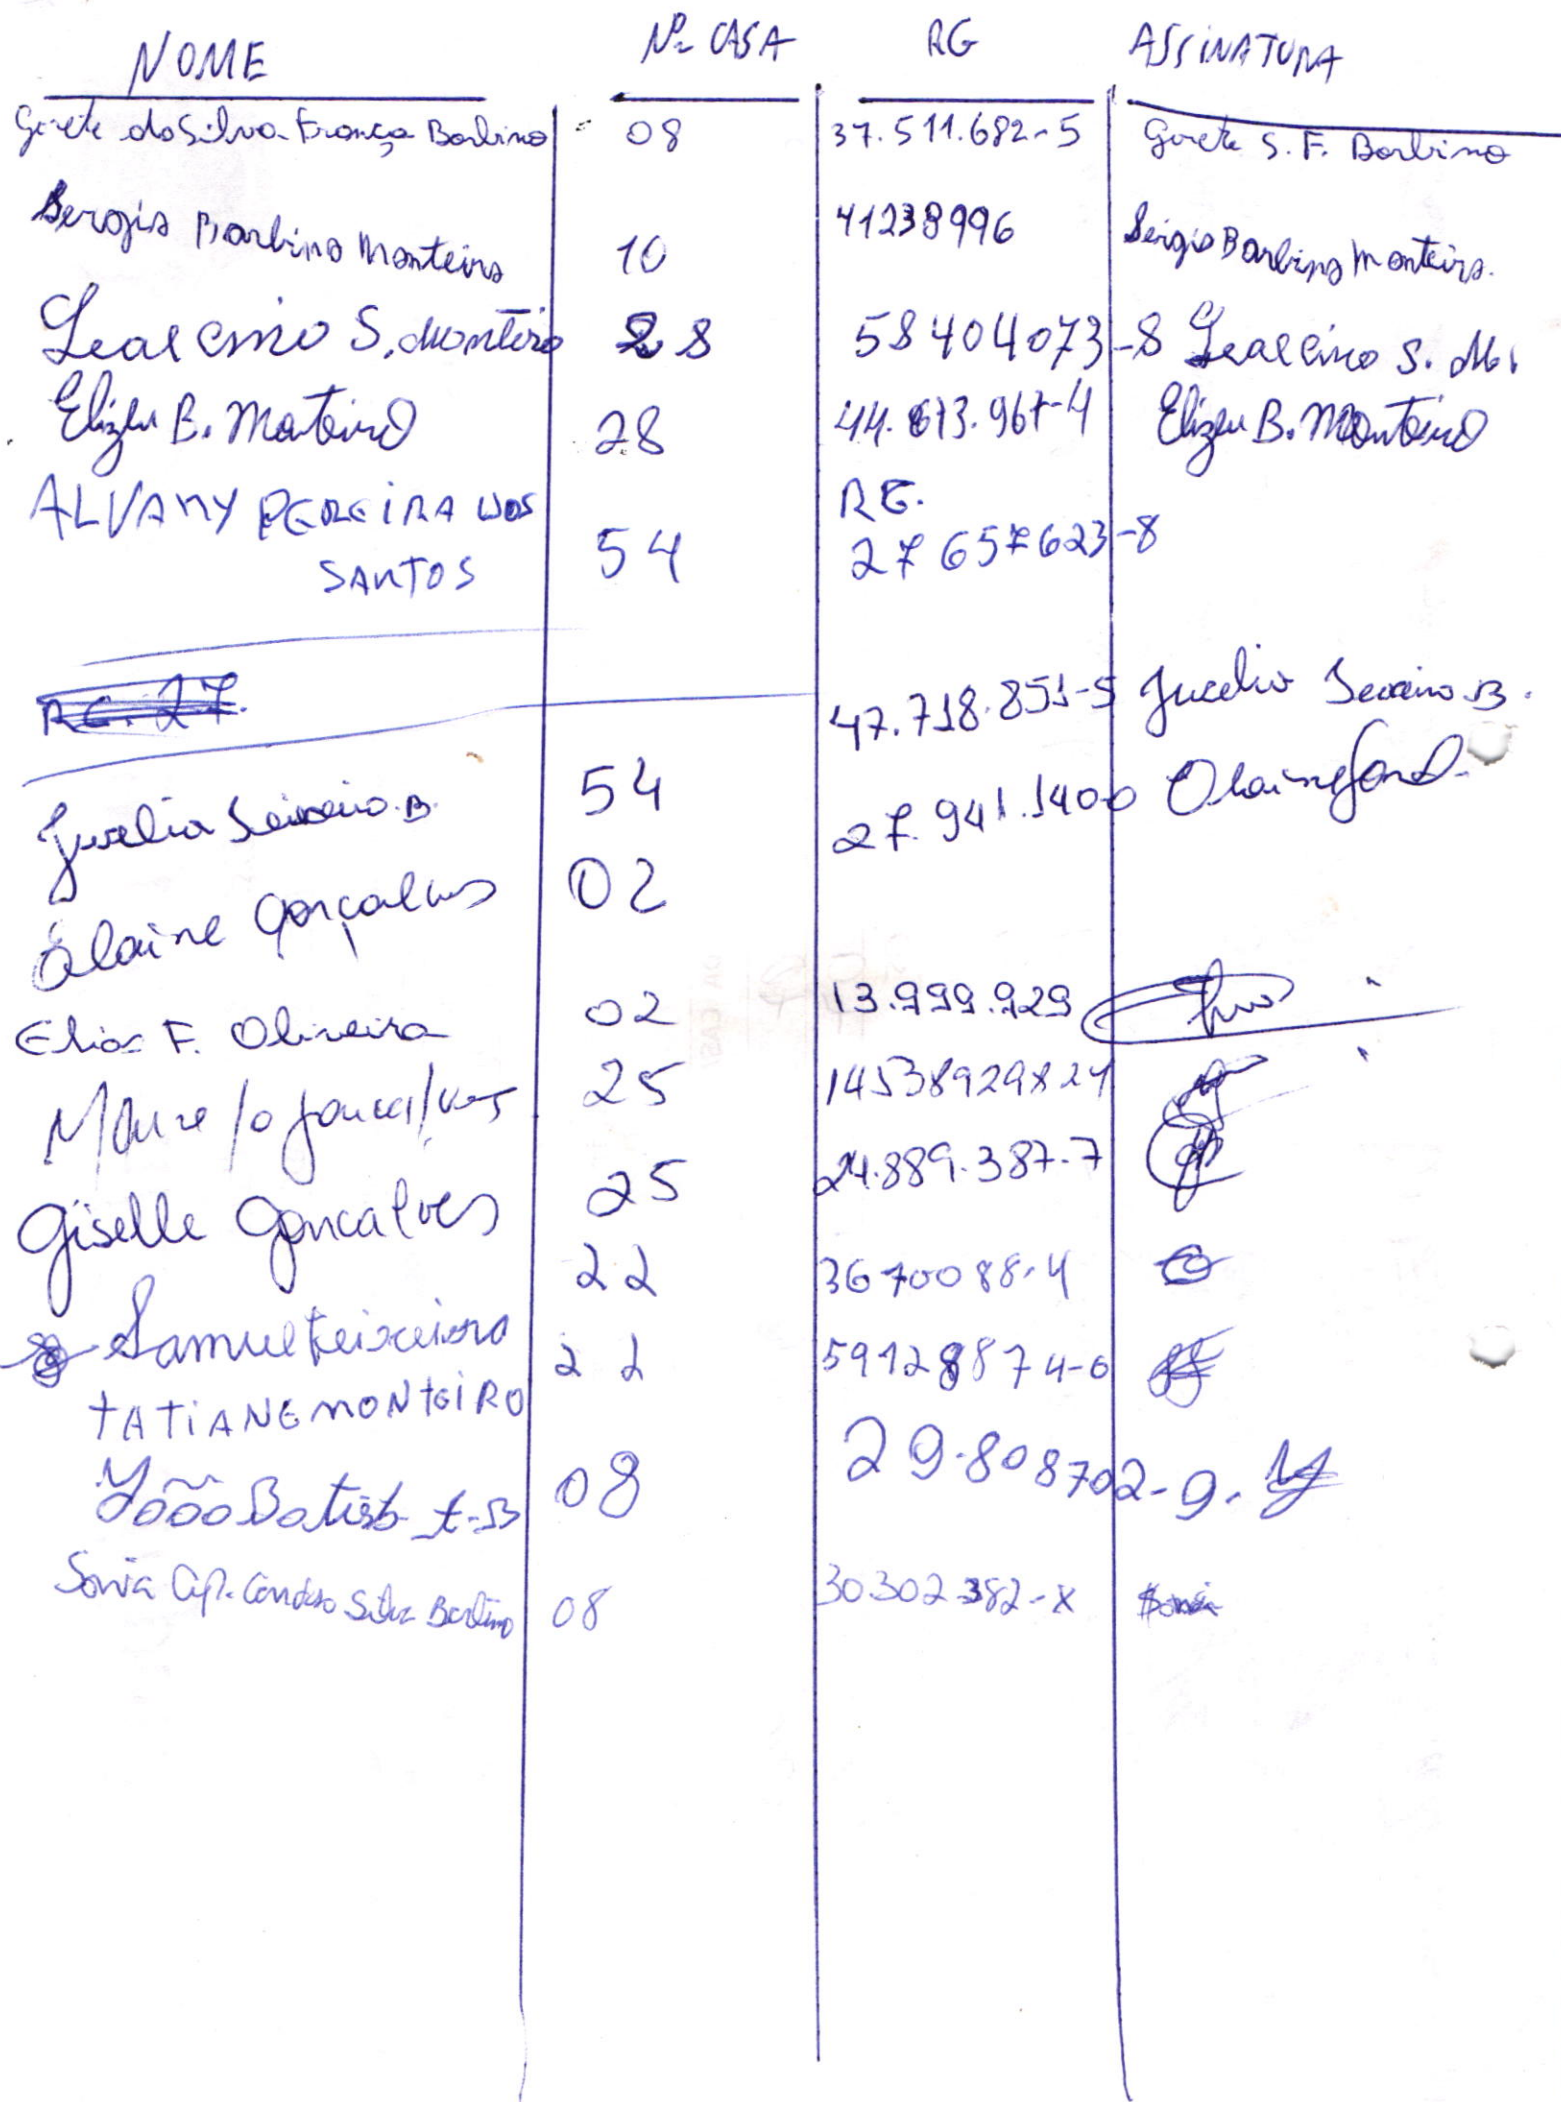 NOME Nº CASA RG ASSINATURA
Gorete da Silva França Barbino 08 37.511.682-5 Gorete S. F. Barbino
Sergio Barbino Monteiro 10 41238996 Sergio Barbino Monteiro.
S. Monteiro 28 58404073-8 S. M.
Elizeu B. Monteiro 28 44.673.967-4 Elizeu B. Monteiro
ALVANY PEREIRA DOS RG.
SANTOS 54 27657623-8
RG. 27.
54 47.718.851-5
Elaine Gonçalves 02 27.941.140-0
Elias F. Oliveira 02 13.999.929
Gonçalves 25
Giselle Goncalves 25 24.889.387-7
Samuel Teixeira 22 3670088-4
TATIANE MONTEIRO 22 59128874-0
João Batista t. B 08 29.808702-9.
Sonia Silva Barbino 08 30302382-X Sonia